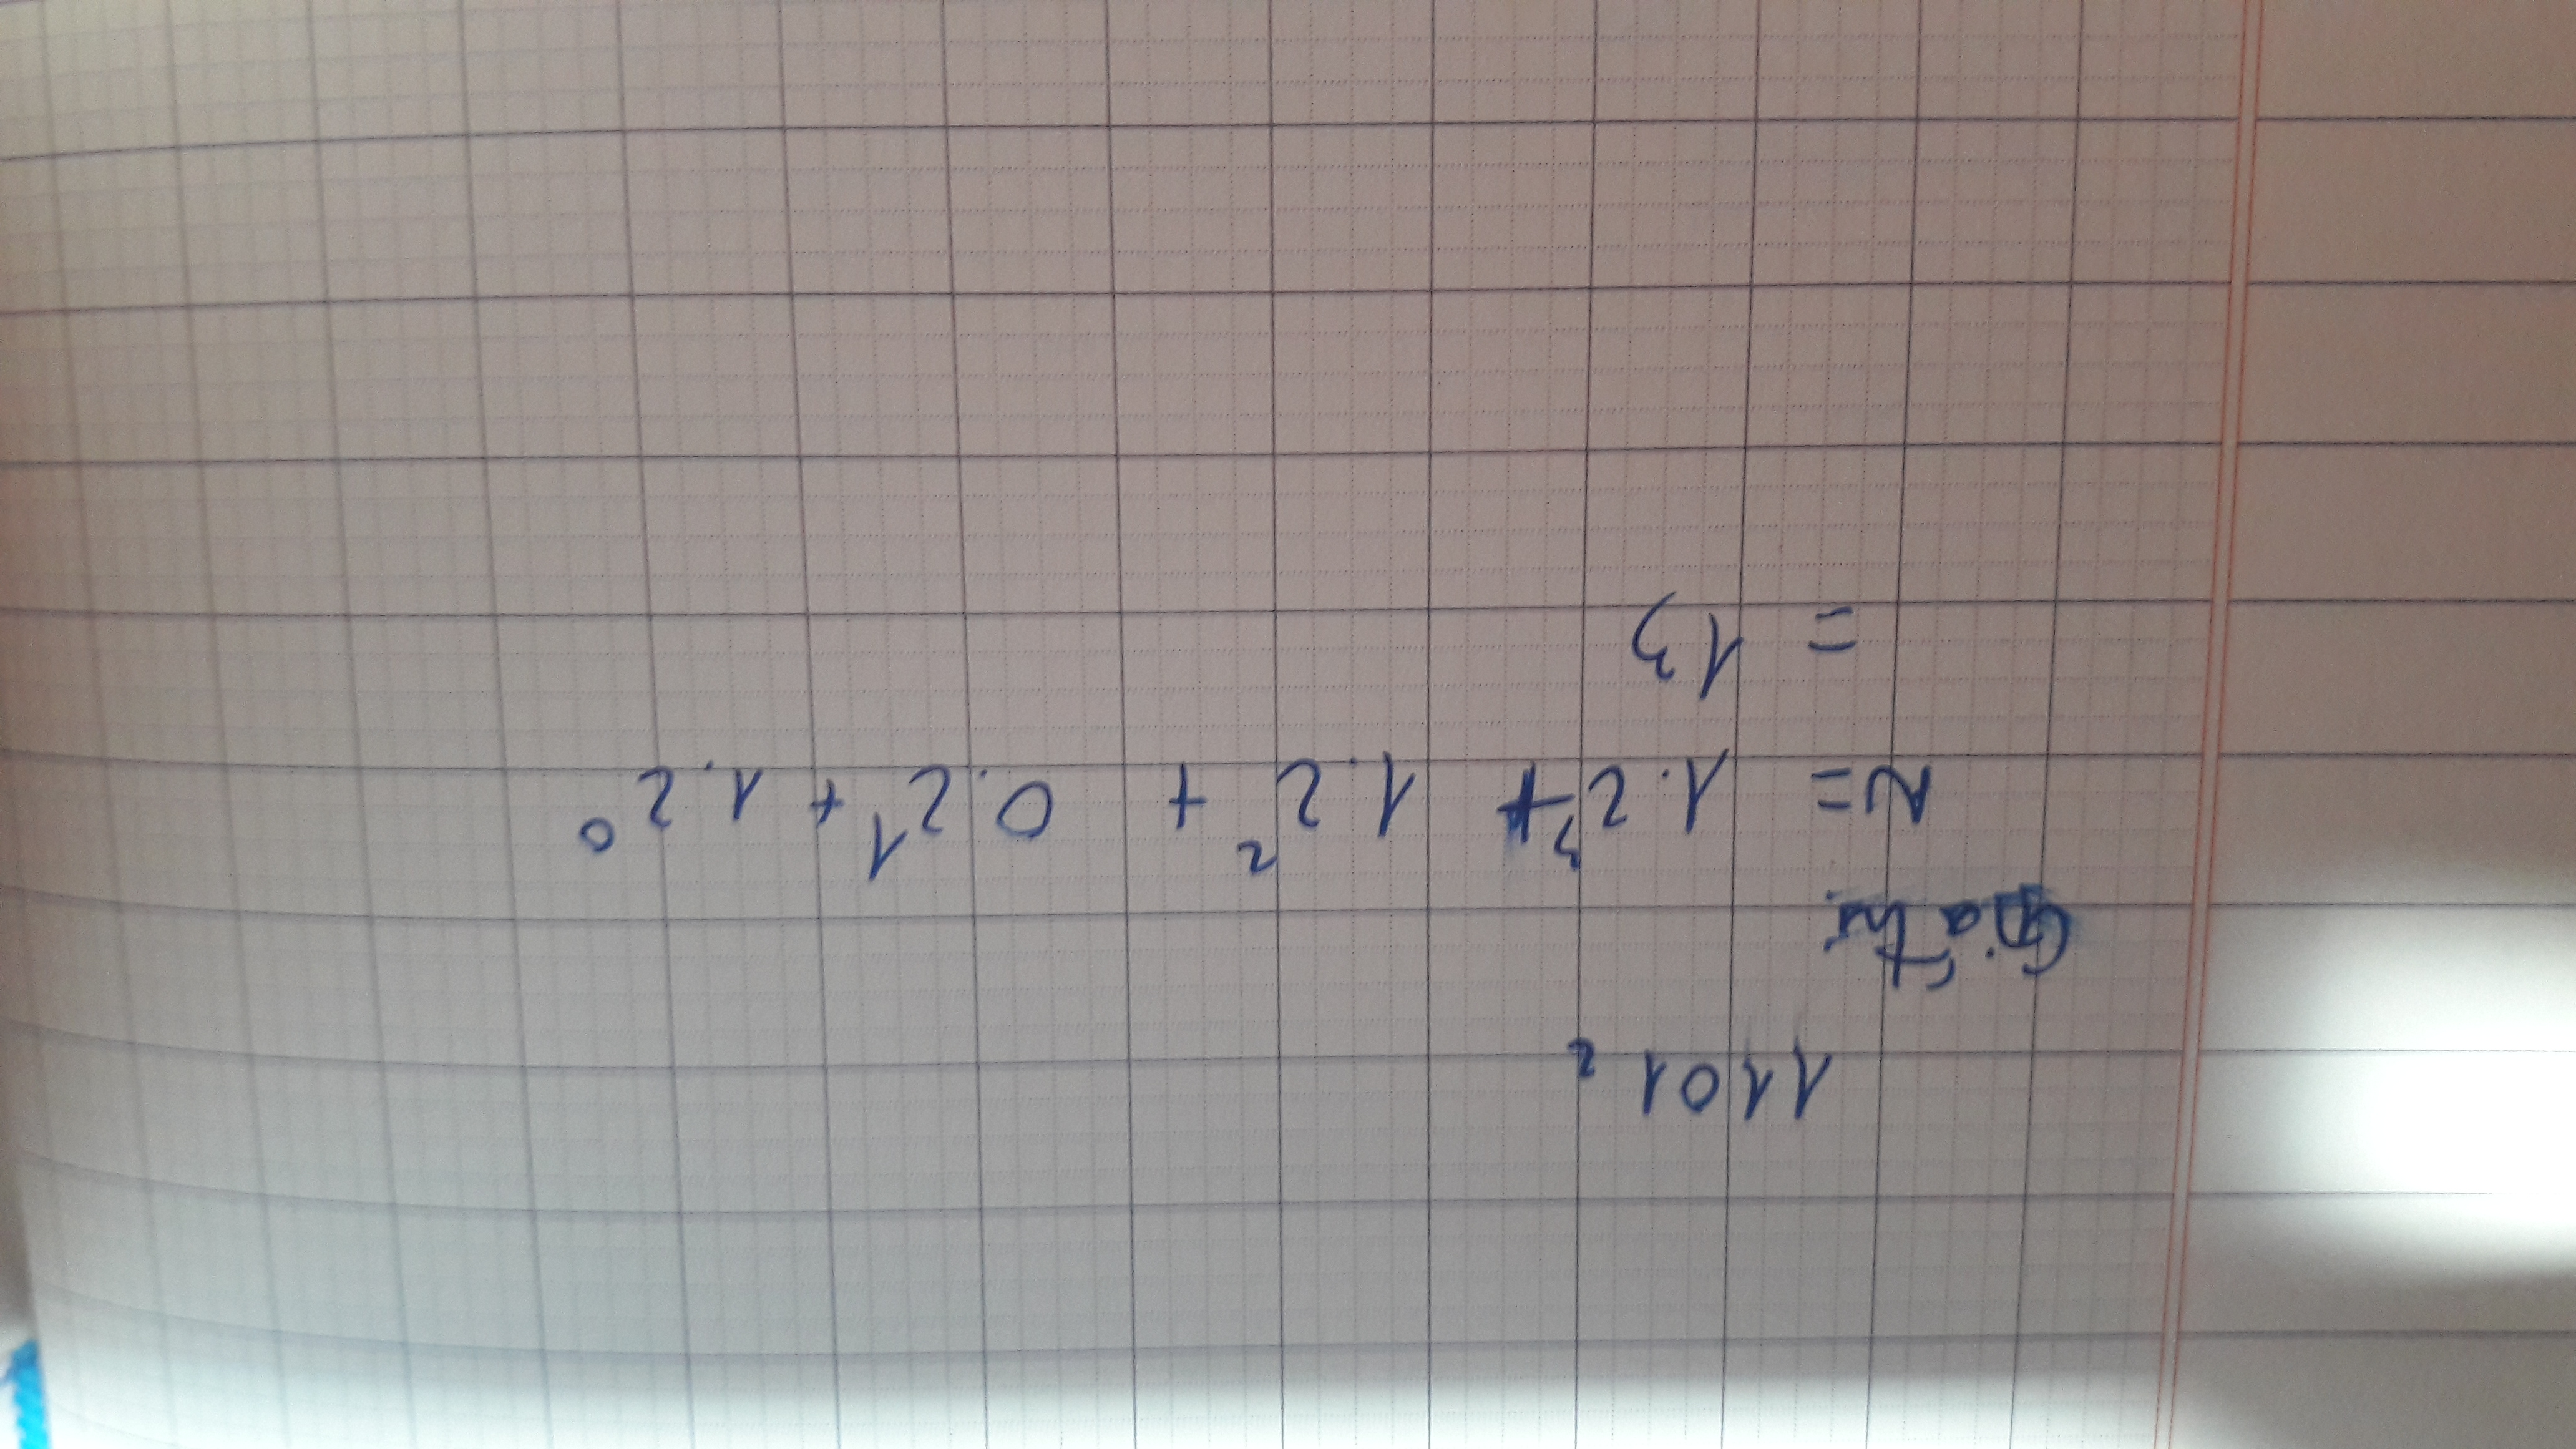 1101₂
Giá trị
N= 1.2³+ 1.2² + 0.2¹ + 1.2⁰
= 13